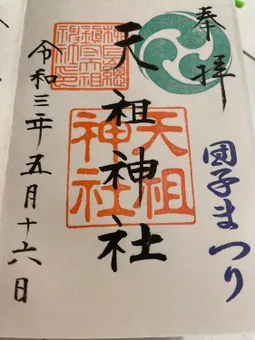 奉拝
団子まつり
天祖神社
天祖
神社
令和三年五月十六日